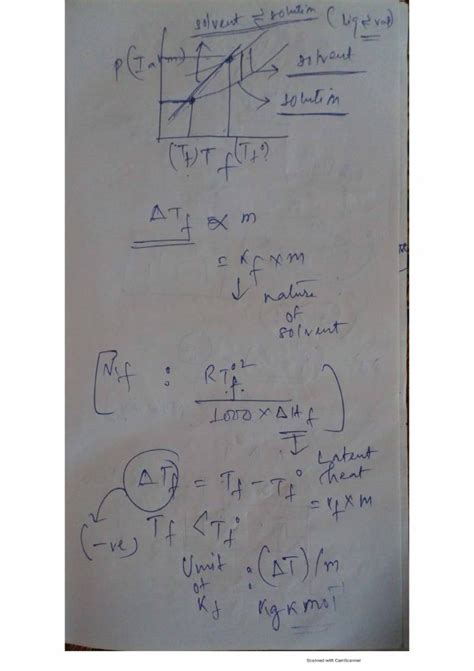 solvent ⇌ solution (liq ⇌ vap)
P(1 atm)
solvent
solution
(Tf) Tf (Tf°)
ΔTf ∝ m
= Kf × m
↓ nature
of
solvent
: RTf°²
1000 × ΔHf
↓ Latent
heat
ΔTf = Tf - Tf°
= Kf × m
(-ve) Tf < Tf°
Unit
of
Kf
: (ΔT)/m
Kg K mol
Scanned with CamScanner